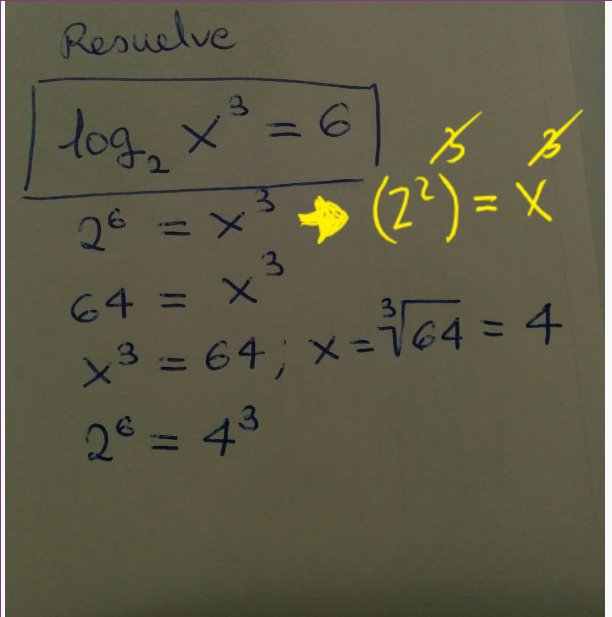 Resuelve
log₂ x³ = 6
2⁶ = x³ → (2²)³ = x³
64 = x³
x³ = 64; x = ³√64 = 4
2⁶ = 4³